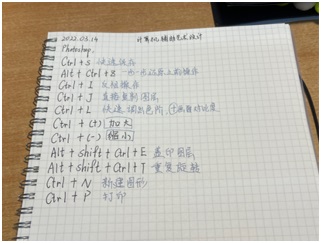 2022.03.14 计算机辅助艺术设计
Photoshop.
Ctrl + S 快速保存
Alt + Ctrl + 8 一步一步还原上的操作
Ctrl + I 反相操作
Ctrl + J 直接复制图层
Ctrl + L 快速调出色阶
Ctrl + (+) 加大
Ctrl + (-) 缩小
Alt + shift + Ctrl + E 盖印图层
Alt + shift + Ctrl + T 重复旋转
Ctrl + N 新建图形
Ctrl + P 打印